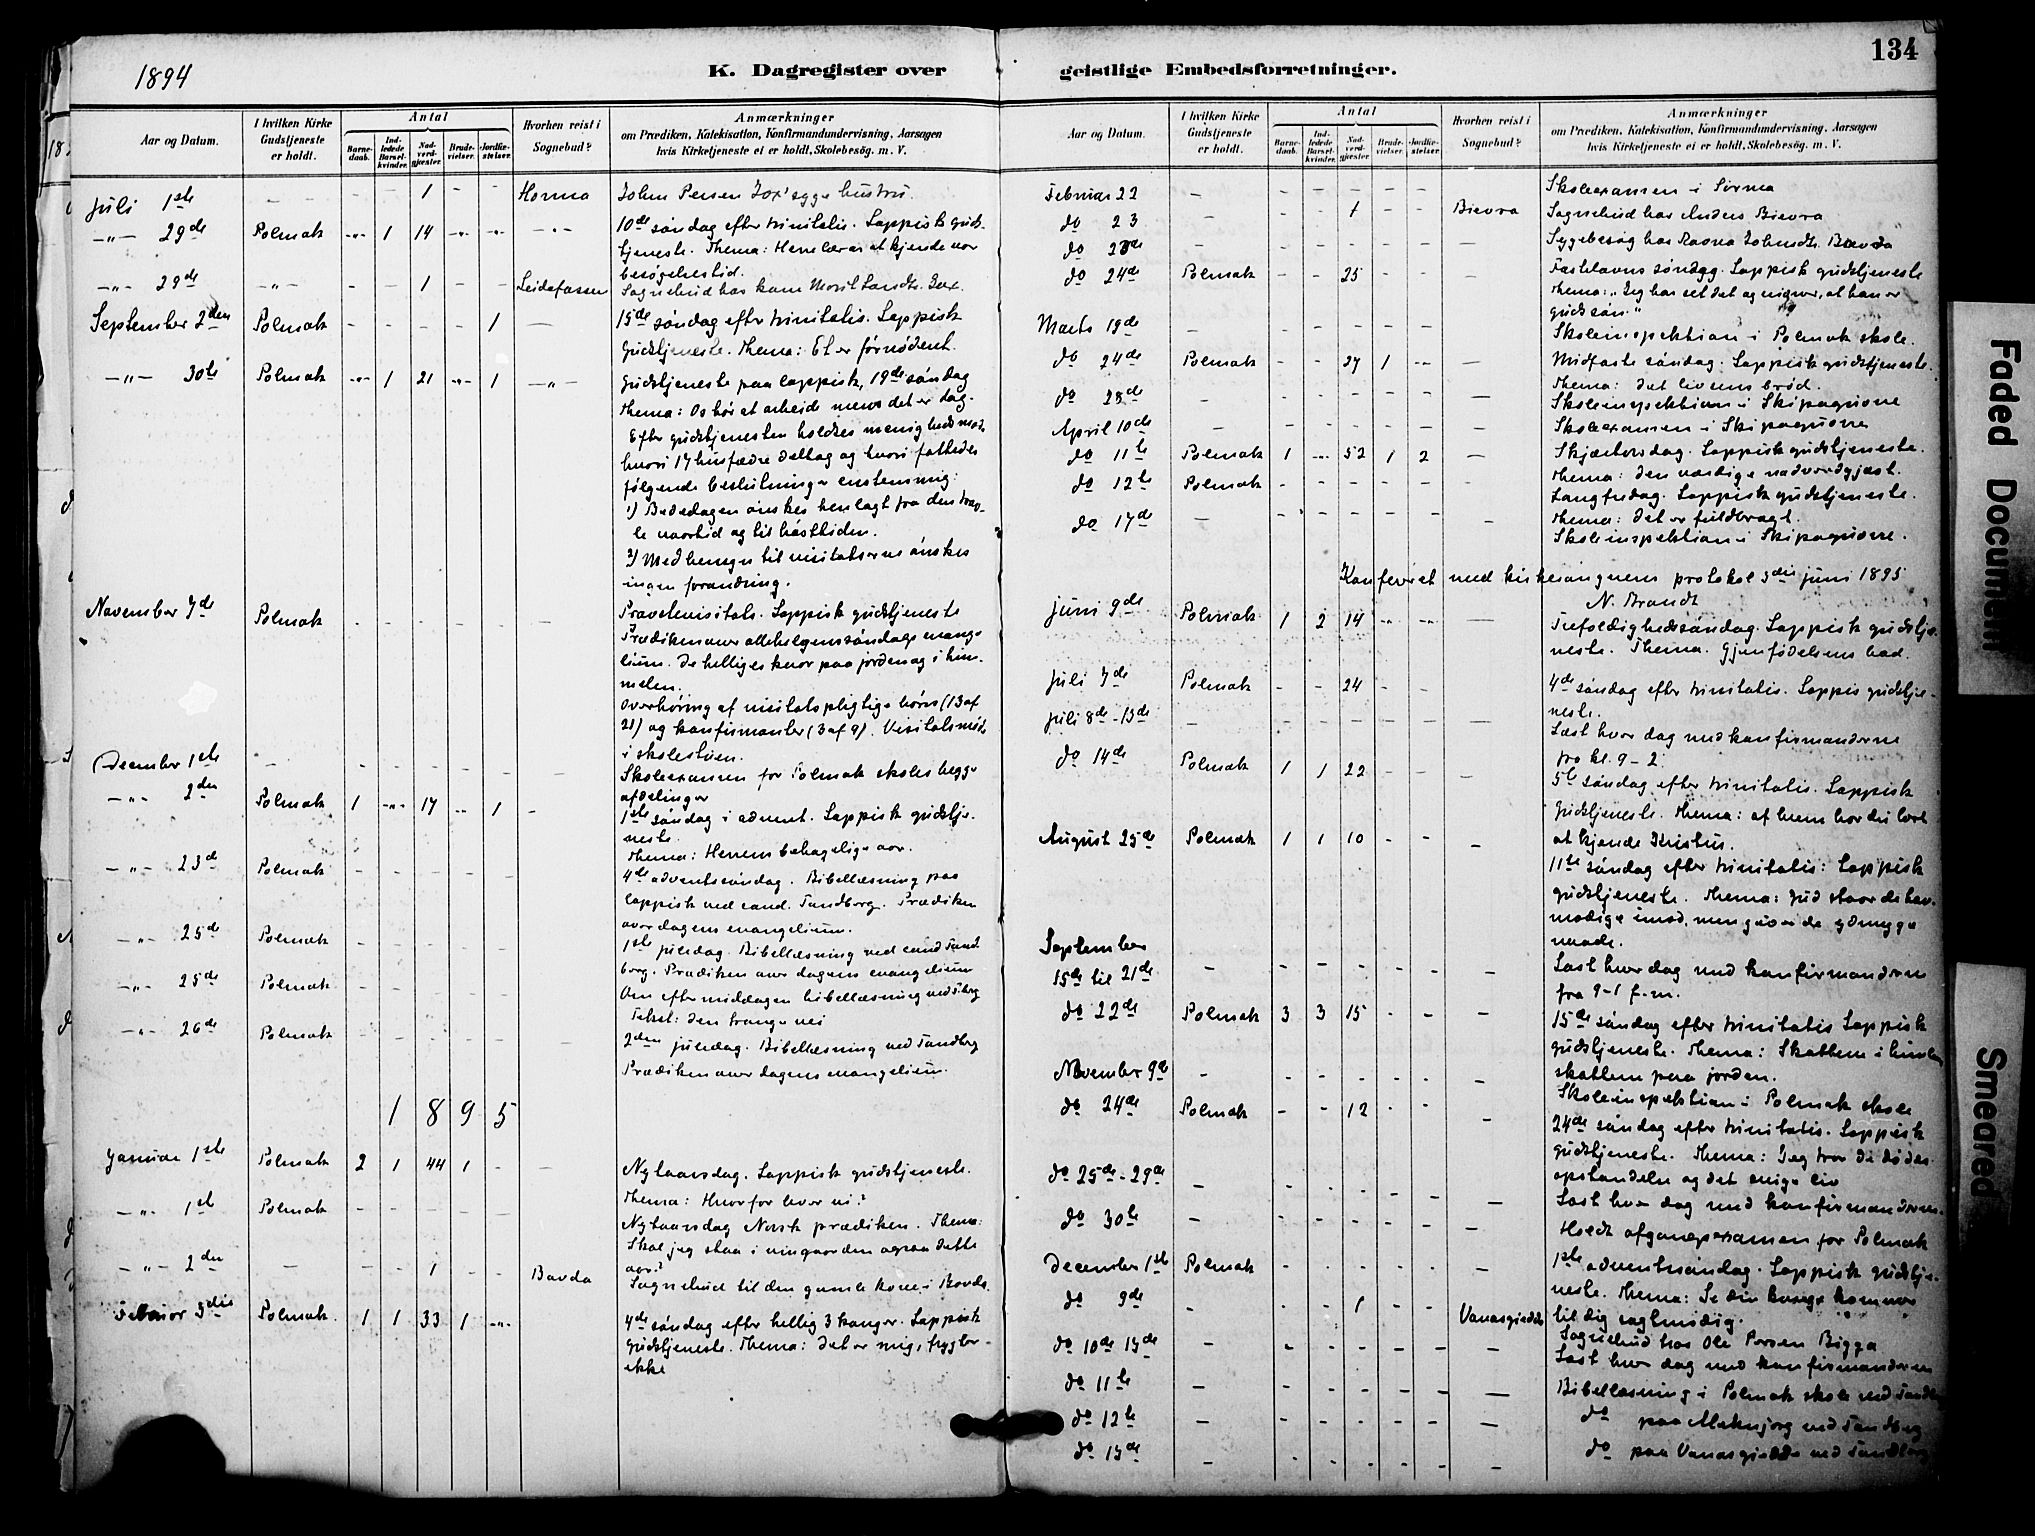 134
1894
K. Dagregister over geistlige Embedsforretninger.
Aar og Datum.
I hvilken Kirke Gudstjeneste er holdt.
Antal
Barnedaab.
Indledede Barselkvinder.
Nadverdgjester.
Brudevielser.
Jordfæstelser.
Hvorhen reist i Sognebud?
Anmærkninger
om Prædiken, Katekisation, Konfirmandundervisning, Aarsagen hvis Kirketjeneste ei er holdt, Skolebesög. m. V.
Juli 1ste - - - 1 - - Horma Johan Persen syge hustru.
-"- 29de Polmak -"- 1 14 -"- -"- -"- 10de søndag efter trinitatis. Lappisk guds-
tjeneste. Thema: Herre lær os at kjende vor
besøgelsestid.
-"- 29de -"- - - 1 - - Leidefossen Sognebud hos kone
September 2den Polmak - - - - 1 - 15de søndag efter trinitatis. Lappisk
gudstjeneste. Thema: Et er fornødent.
-"- 30te Polmak -"- 1 21 -"- 1 -"- Gudstjeneste paa lappisk, 19de søndag
Thema: Os bør at arbeide mens det er dag.
Efter gudstjenesten holdtes menighedsmøde,
hvori 17 husfædre deltog og hvori fattedes
følgende beslutninger enstemmig:
1) Bededagen ønskes henlagt fra den trav-
le vaartid og til høsttiden.
2) Med hensyn til visitatserne ønskes
ingen forandring.
November 7de Polmak - - - - - - Provstevisitats. Lappisk gudstjeneste
Prædiken over allehelgenssøndags evange-
lium. De helliges kaar paa jorden og i him-
melen.
Overhøring af visitatspligtige børn (13 af
21) og konfirmanter (3 af 9). Visitatsmøde
i skolestuen.
December 1ste - - - - - - - Skoleexamen for Polmak skoles begge
afdelinger
-"- 2den Polmak 1 -"- 17 -"- 1 - 1ste søndag i advent. Lappisk gudstje-
neste.
Thema: Herrens behagelige aar.
-"- 23de Polmak - - - - - - 4de adventssøndag. Bibellæsning paa
lappisk ved cand. Tandberg. Prædiken
over dagens evangelium.
-"- 25de Polmak - - - - - - 1ste juledag. Bibellæsning ved cand Tand-
berg. Prædiken over dagens evangelium
-"- 25de Polmak - - - - - - Om eftermiddagen bibellæsning ved Tberg
Tekst: den trange vei
-"- 26de Polmak - - - - - - 2den juledag. Bibellæsning ved Tandberg
Prædiken over dagens evangelium.
1 8 9 5
Januar 1ste Polmak 2 1 44 1 - - Nytaarsdag. Lappisk gudstjeneste.
Thema: Hvorfor lever vi?
-"- 1ste Polmak Nytaarsdag Norsk prædiken. Thema:
Skal jeg staa i vingaarden ogsaa dette
aar?
-"- 2den - - - 1 - - Bavda Sognebud til den gamle kone i Bavda.
Februar 3die Polmak 1 1 33 1 -"- 4de søndag efter hellig 3 konger. Lappisk
Gudstjeneste. Thema: det er mig, frygter
ikke
Aar og Datum.
I hvilken Kirke Gudstjeneste er holdt.
Antal
Barnedaab.
Indledede Barselkvinder.
Nadverdgjester.
Brudevielser.
Jordfæstelser.
Hvorhen reist i Sognebud?
Anmærkninger
om Prædiken, Katekisation, Konfirmandundervisning, Aarsagen hvis Kirketjeneste ei er holdt, Skolebesög. m. V.
Februar 22 - - - - - - Skoleexamen i Sirma
do 23 - - - 1 - - Bievra Sognebud hos Anders Bievra
do 23de - - - - - - - Sygebesøg hos Ravna Bavda
do 24de Polmak - - 25 - - - Fastelavns søndag. Lappisk gudstjeneste
Thema: "Jeg har set det og vidner, at han er
guds søn."
Marts 19de - - - - - - Skoleinspektion i Polmak skole.
do 24de Polmak - - 27 1 - - Midfaste søndag. Lappisk gudstjeneste.
Thema: det livsens brød.
do 28de - - - - - - - Skoleinspektion i Skipagurra
April 10de - - - - - - - Skoleexamen i Skipagurra
do 11te Polmak 1 - 52 1 2 - Skjærtorsdag. Lappisk gudstjeneste.
Thema: den værdige nadverdgjest.
do 12te Polmak - - - - - - Langfredag. Lappisk gudstjeneste.
Thema: det er fuldbragt.
do 17de - - - - - - - Skoleinspektion i Skipagurra.
Konfereret med kirkesangerens protokol 3die juni 1895
N. Brandt
Juni 9de Polmak 1 2 14 -"- -"- - Trefoldighedssøndag. Lappisk gudstje-
neste. Thema. Gjenfødelsens bad.
Juli 7de Polmak - - 24 - - 4de søndag efter trinitatis. Lappis gudstje-
neste.
Juli 8de-13de - - - - - - - Læst hver dag med konfirmanderne
fra kl. 9-2.
do 14de Polmak 1 1 22 - - - 5te søndag efter trinitatis. Lappisk
Gudstjeneste. Thema: af hvem har du lært
at kjende Kristus.
August 25de Polmak 1 1 10 - - - 11te søndag efter trinitatis: Lappisk
gudstjeneste. Thema: Gud staar de hov-
modige imod, men giver de ydmyge
naade.
September
15de til 21de - - - - - - - Læst hver dag med konfirmanderne
fra 9-1 f.m.
do 22de Polmak 3 3 15 - - - 15de søndag efter trinitatis Lappisk
Gudstjeneste. Thema: Skattene i himlen
skattene paa jorden.
November 9de - - - - - - - Skoleinspektion i Polmak skole
do 24de Polmak - - 12 - - - 24de søndag efter trinitatis. Lappisk
gudstjeneste. Thema: Jeg tror de dødes
opstandelse og det evige liv
do 25de-29de - - - - - - - Læst hver dag med konfirmanderne.
do 30te - - - - - - - Holdt afgangsexamen for Polmak
December 1ste Polmak - - - - - - 1ste adventssøndag. Lappisk gudstje-
neste. Thema: Se din konge kommer
til dig sagtmodig.
do 9de - - - 1 - - Vanasgiedde Sognebud hos Ole Persen Bigga
do 10de 13de - - - - - - - Læst hver dag med konfirmanderne
do 11te - - - - - - - Bibellæsning i Polmak skole ved
do 12te - - - - - - - do paa ved Tandberg
do 13de - - - - - - - do paa Vanasgiedde ved Tandberg
Faded Document
Smeared